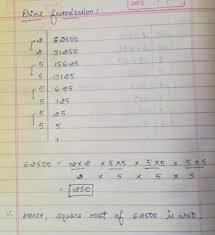 DATE
Prime factorization:
2 | 62500
2 | 31250
5 | 15625
5 | 3125
5 | 625
5 | 125
5 | 25
5 | 5
1
62500 = 2×2 × 5×5 × 5×5 × 5×5
2 × 5 × 5 × 5
= 250
∴ Hence, square root of 62500 is 250.